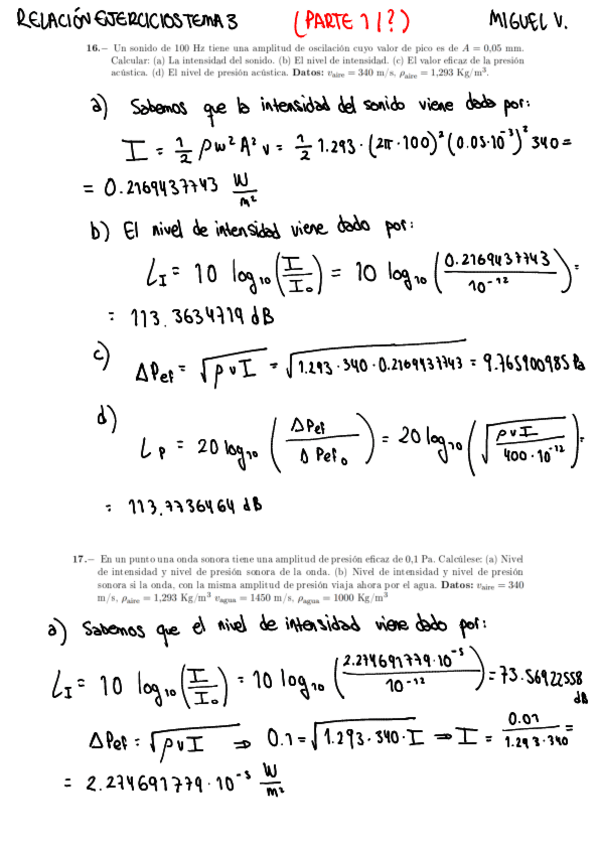 RELACIÓN EJERCICIOS TEMA 3 (PARTE 1/?) MIGUEL V.
16.– Un sonido de 100 Hz tiene una amplitud de oscilación cuyo valor de pico es de A = 0,05 mm.
Calcular: (a) La intensidad del sonido. (b) El nivel de intensidad. (c) El valor eficaz de la presión
acústica. (d) El nivel de presión acústica. Datos: v_aire = 340 m/s, ρ_aire = 1,293 Kg/m³.
a) Sabemos que la intensidad del sonido viene dada por:
I = 1/2 ρ w² A² v = 1/2 1.293 · (2π · 100)² (0.05 · 10⁻³)² 340 =
= 0.2169437743 W/m²
b) El nivel de intensidad viene dado por:
L_I = 10 log₁₀ (I/I₀) = 10 log₁₀ (0.2169437743/10⁻¹²) =
= 113.3634719 dB
c) ΔPef = √(ρ v I) = √(1.293 · 340 · 0.2169437743) = 9.765900985 Pa
d) L_P = 20 log₁₀ (ΔPef/ΔPef₀) = 20 log₁₀ (√(ρ v I/400 · 10⁻¹²)) =
= 113.7736464 dB
17.– En un punto una onda sonora tiene una amplitud de presión eficaz de 0,1 Pa. Calcúlese: (a) Nivel
de intensidad y nivel de presión sonora de la onda. (b) Nivel de intensidad y nivel de presión
sonora si la onda, con la misma amplitud de presión viaja ahora por el agua. Datos: v_aire = 340
m/s, ρ_aire = 1,293 Kg/m³ v_agua = 1450 m/s, ρ_agua = 1000 Kg/m³
a) Sabemos que el nivel de intensidad viene dado por:
L_I = 10 log₁₀ (I/I₀) = 10 log₁₀ (2.274691779 · 10⁻⁵/10⁻¹²) = 73.56922558 dB
ΔPef = √(ρ v I) ⇒ 0.1 = √(1.293 · 340 · I) ⇒ I = 0.01/1.293 · 340 =
= 2.274691779 · 10⁻⁵ W/m²